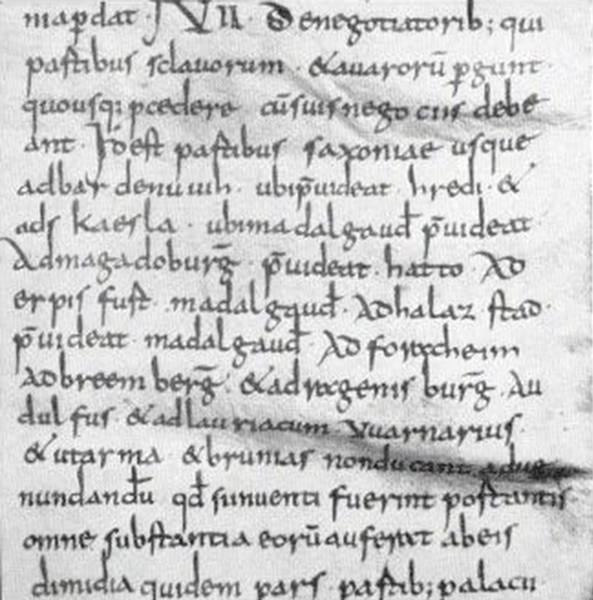 map̄dat · VII · De negotiatorib; qui
partibus sclauorum · & auarorū p̱gunt ·
quousq; p̄cedere cū suis negociis debe
ant · Id est partibus saxoniae usque
ad bardenuuih · ubi p̄uideat · hredi · &
ad skaesla · ubi madalgaud̄ p̄uideat
Ad magadoburḡ · p̄uideat · hatto · Ad
erpisfurt · madalgaud̄ · Ad halazstad ·
p̄uideat · madalgaud̄ · Ad foracheim
Ad breemberḡ · & ad raegenisburḡ · Au
dulfus · & ad lauriacum vuarnarius ·
& ut arma · & brunias non ducant adue
nundandū qđ si inuenti fuerint portantes
omne substantia eorū auferat ab eis
dimidia quidem pars partib; palacii ·